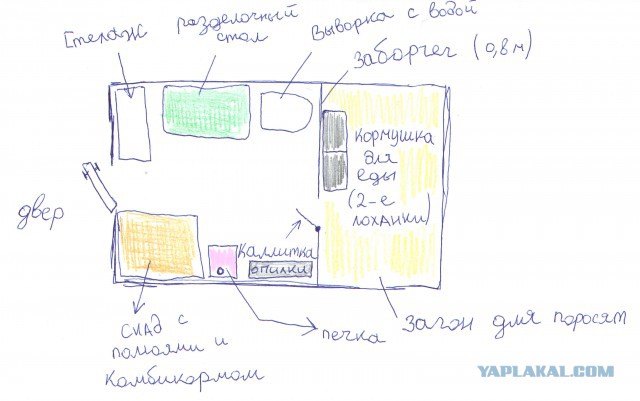 Стелаж
разделочный
стол
Выворка с водой
Заборчег (0,8м)
Кормушка
для
еды
(2-е
лоханки)
двер
Каллитка
опилки
Скад с
помоями и
Комбикормом
печка
Загон для поросят
YAPLAKAL.COM